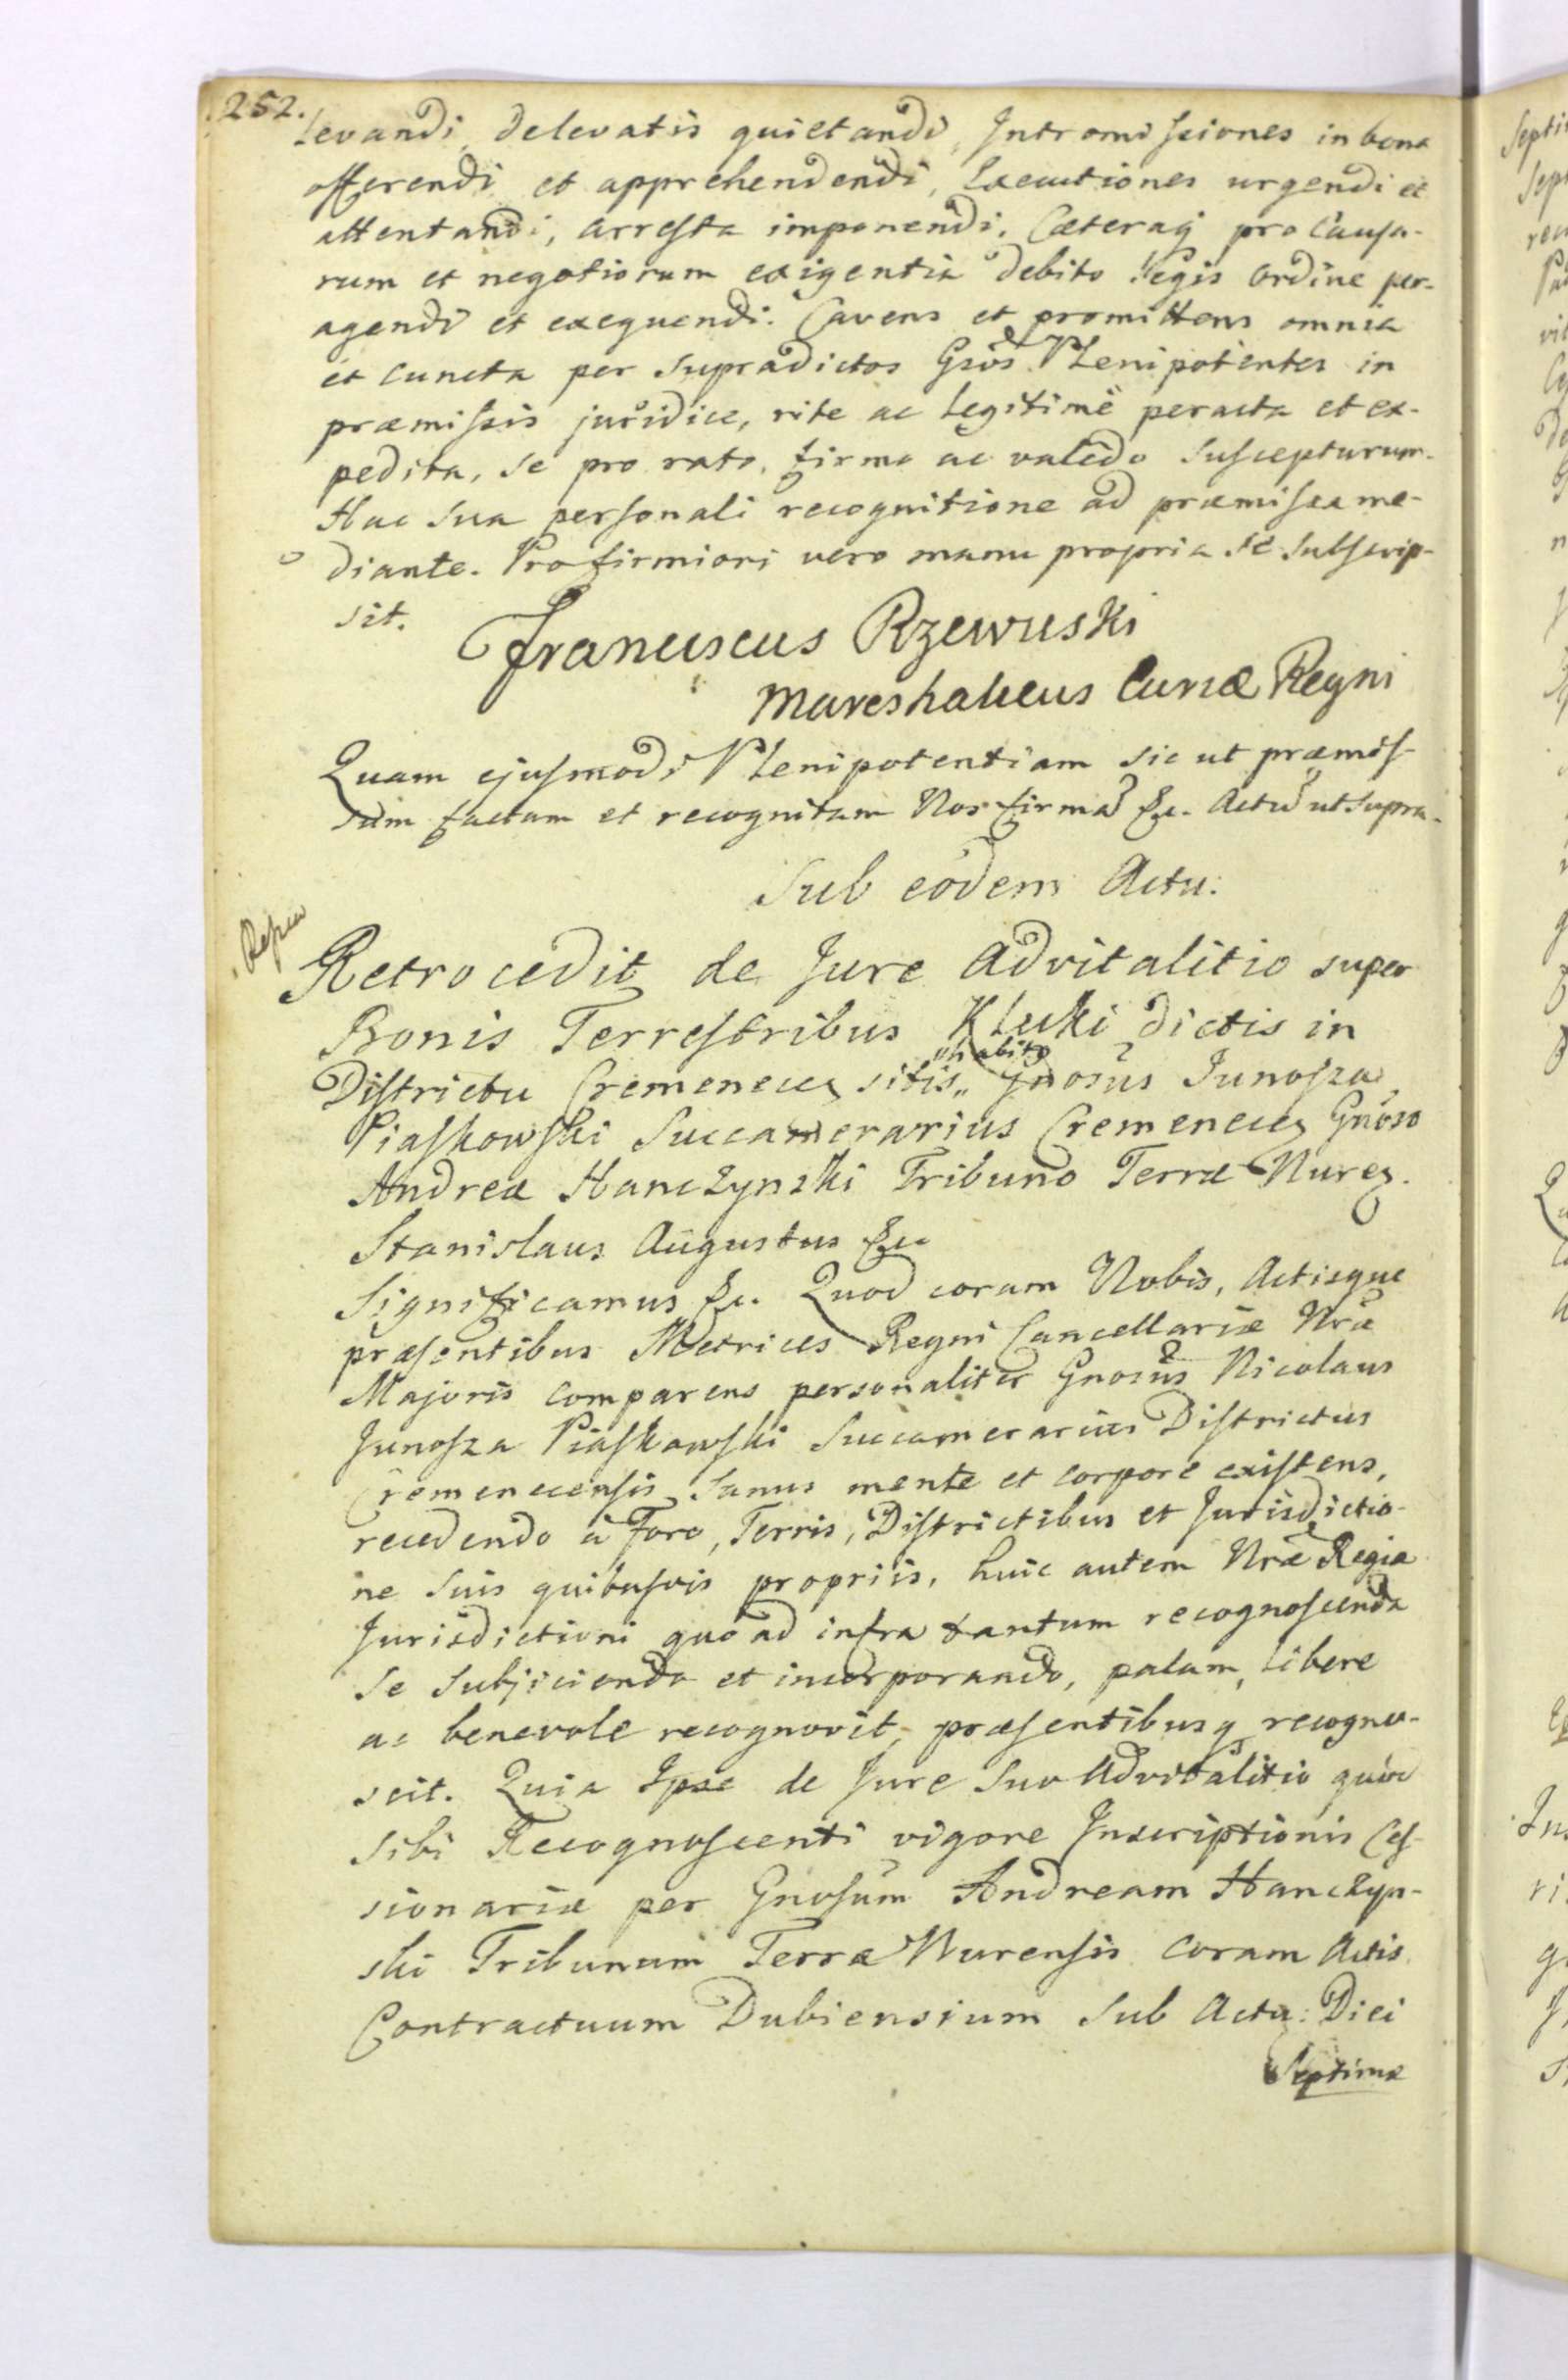 252.
levandi, delevatis quietandi, Intromissiones in bona
offerendi et apprehendendi, Executiones urgendi et
attentandi, arresta imponendi, Cæteraq pro Causa-
rum et negotiorum exigentia debito legis Ordine per-
agendi et exequendi. Cavens et promittens omnia
et cuncta per supradictos Gsos Plenipotentes in
præmissis juridice, rite ac legitime peracta et ex-
pedita, se pro rato, firmo ac valido suscepturum.
Hac sua personali recognitione ad præmissa me-
diante. Pro firmiori vero manu propria se subscrip-
sit.
Franciscus Rzewuski
Mareshalcus Curiæ Regni
Quam ejusmodi Plenipotentiam sic ut præmis-
sum factam et recognitam Nos firma &c. Actū ut supra.
Sub eodem Actu.
Retrocedit de Jure Advitalitio super
Bonis Terrestribus Kluki dictis in
Districtu Cremenecen sitis „habito„ Gnosus Junosza
Piaskowski Succamerarius Cremenecen Gnoso
Andreæ Hanczynski Tribuno Terræ Nuren.
Stanislaus Augustus &c
Significamus &c. Quod coram Nobis, Actisque
præsentibus Metrices Regni Cancellariæ Nræ
Majoris comparens personaliter Gnosus Nicolaus
Junosza Piaskowski Succamerarius Districtus
Cremenecensis sanus mente et corpore existens,
recedendo à Foro, Terris, Districtibus et Jurisdictio-
ne suis quibusvis propriis, huic autem Nræ Regiæ
Jurisdictioni quo ad infra tantum recognoscenda
se subjiciendo et incorporando, palam, libere
ac benevole recognovit, præsentibusq recogno-
scit. Quia Ipse de Jure suo Advitalitio quoc
sibi Recognoscenti vigore Inscriptionis Ces-
sionariæ per Gnosum Andream Hanczyn-
ski Tribunum Terræ Nurensis coram Actis
Contractuum Dubiensium sub Actu: Diei
Septima